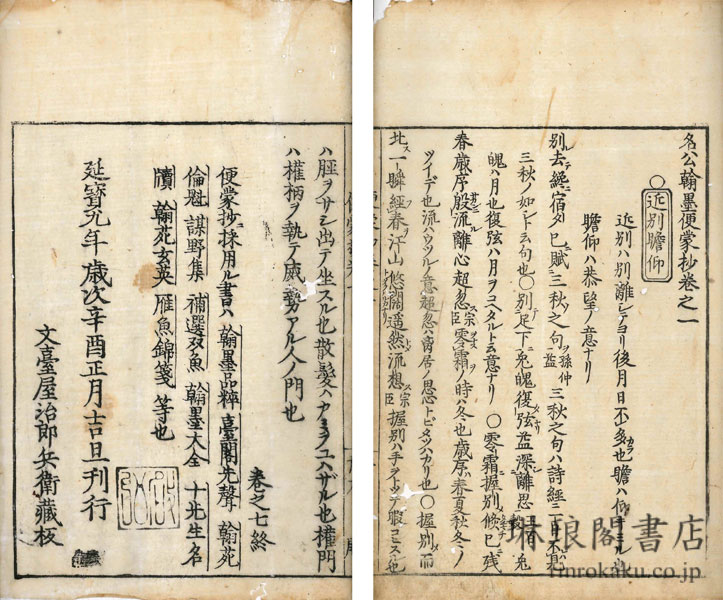 名公翰墨便蒙抄巻之一
○近別贍仰
近別ハ別離シテヨリ後月日不多也贍ハ仰ギミル也
贍仰ハ恭望ノ意ナリ
別去経宿タ已賦三秋之句孫仲益三秋之句ハ詩経ニ一日不見
三秋ノ如シト云句也○別足下兎魄復弦益深離思 兎
魄ハ月也復弦ハ月ヲコヘタルト云意ナリ○零霜握別倏已残
春歳序殷流離心超忽宗臣零霜ノ時ハ冬也歳序ハ春夏秋冬ノ
ツイデ也流ハウツルノ意超忽ハ 居ノ思トビタツバカリ也○握別而
北一瞬経春汗山悠闊遥然流想宗臣握別ハ手ヲトツテ暇コヒスル也
ハ脛ヲサシ出テ坐スル也散髪ハカミヲユハザル也権門
ハ権柄ヲ執テ威勢アル人ノ門也
巻之七終
便蒙抄ニ採用ル書ハ 翰墨品粹 臺閣先聲 翰苑
倫魁 謀野集 補選双魚 翰墨大全 十先生名
牘 翰苑玄英 雁魚錦箋 等也
延寳九年歳次辛酉正月吉旦刊行
文臺屋治郎兵衛藏板
琳琅閣書店
rinrokaku.co.jp